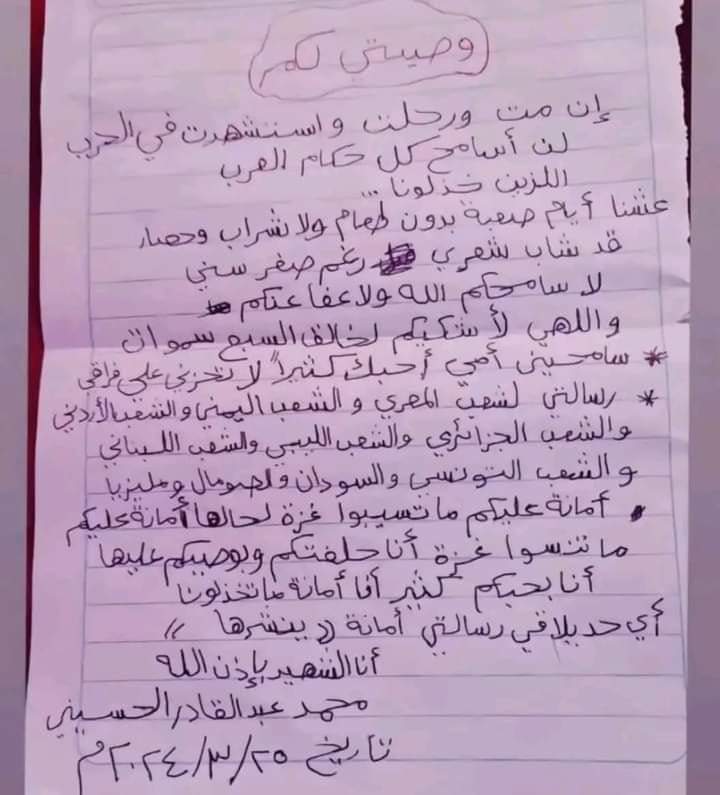 وصيتي لكم
إن مت ورحلت واستشهدت في الحرب
لن أسامح كل حكام العرب
اللزين خذلونا ...
عشنا أيام صعبة بدون طعام ولا شراب وحصار
قد شاب شعري رغم صغر سني
لا سامحكم الله ولا عفا عنكم
واللهي لأشكيكم لخالق السبع سموات
* سامحيني أمي أحبك كثيراً لا تحزني علي فراقي
* رسالتي لشعب المصري والشعب اليمني والشعب الأردني
والشعب الجزائري والشعب الليبي والشعب اللبناني
والشعب التونسي والسودان والصومال ومليزيا
أمانة عليكم ما تسيبوا غزة لحالها أمانة عليكم
ما تنسوا غزة أنا حلفتكم وبوصيكم عليها
أنا بحبكم كثير أنا أمانة ما تخذلونا
أي حد يلاقي رسالتي أمانة (( ينشرها ))
أنا الشهيد بإذن الله
محمد عبدالقادر الحسيني
تاريخ ٢٥/٣/٢٠٢٤م